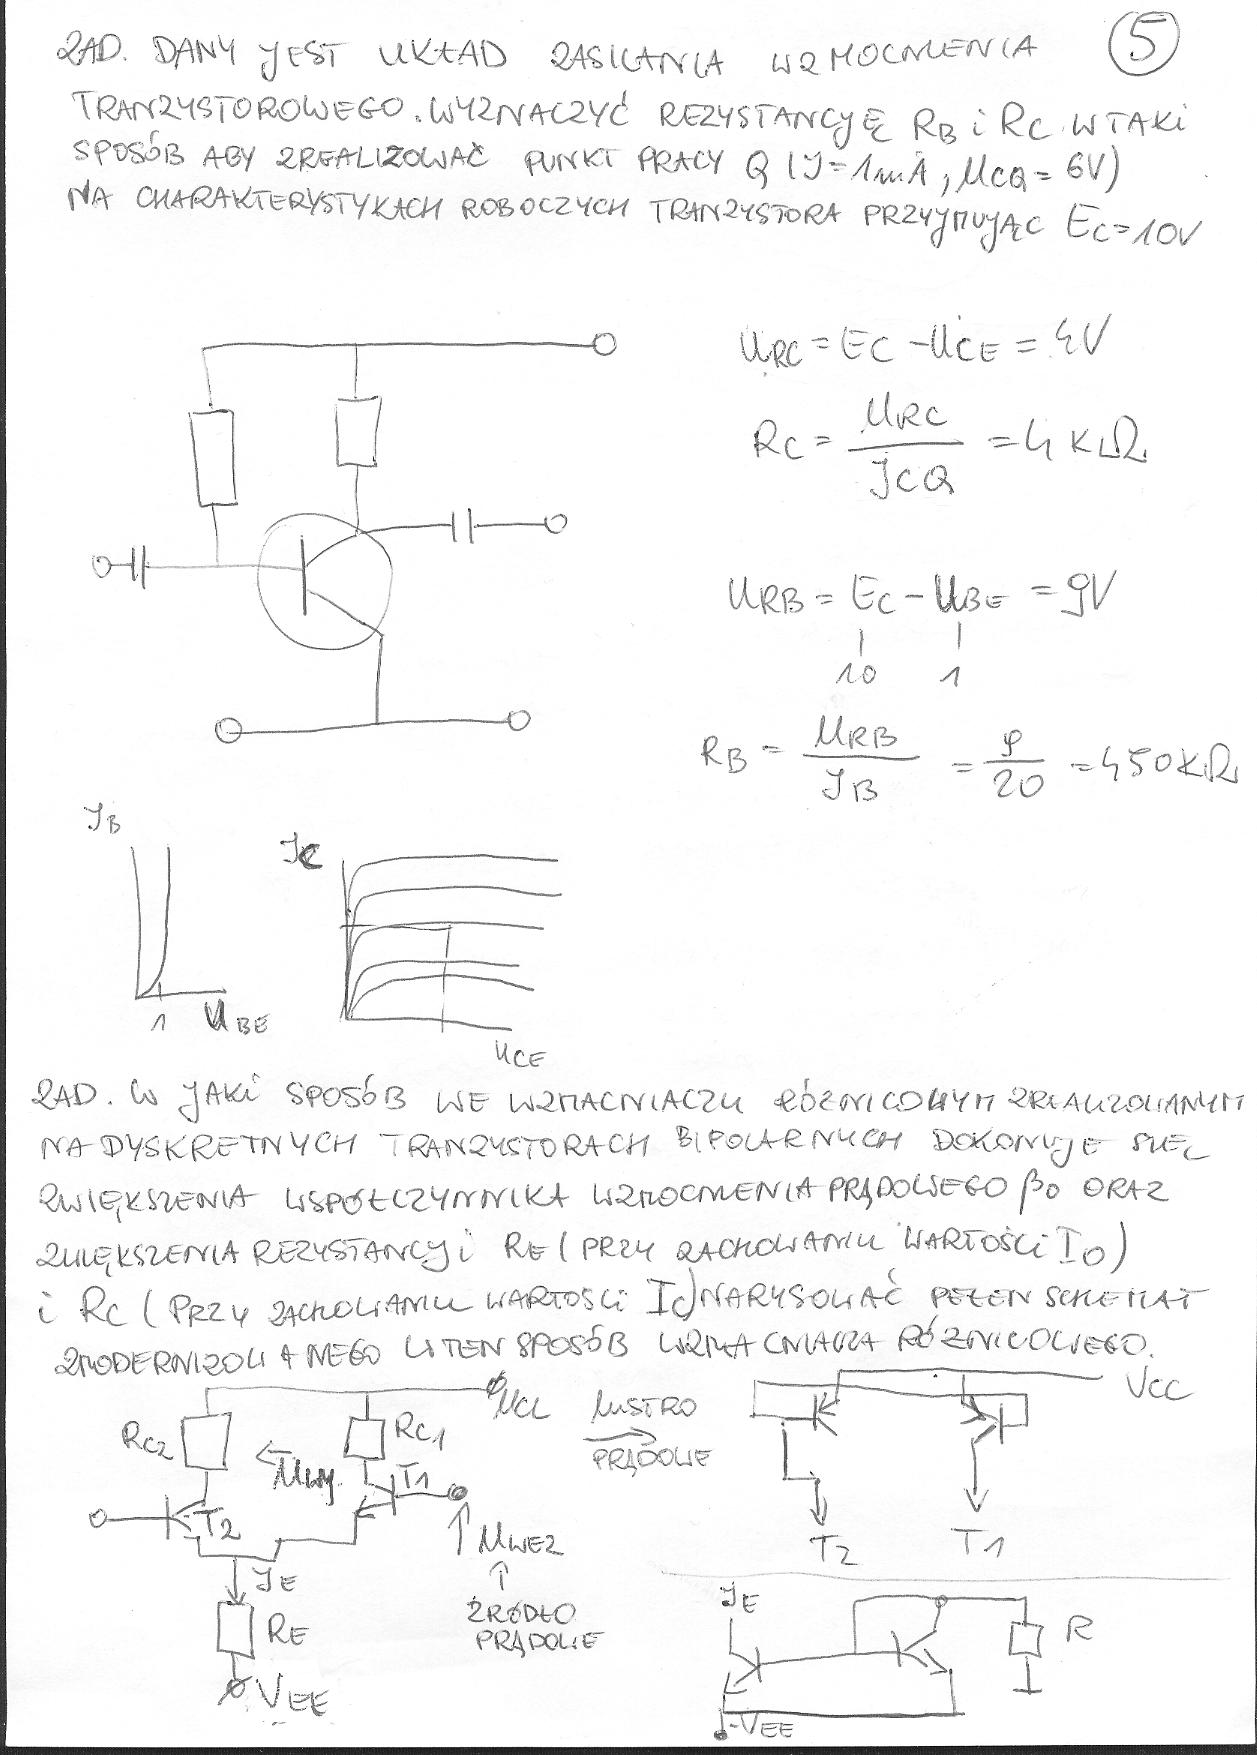 5
ZAD. DANY JEST UKŁAD ZASILANIA WZMOCNIENIA
TRANZYSTOROWEGO. WYZNACZYĆ REZYSTANCJĘ RB i RC W TAKI
SPOSÓB ABY ZREALIZOWAĆ PUNKT PRACY Q (J=1mA, UCQ=6V)
NA CHARAKTERYSTYKACH ROBOCZYCH TRANZYSTORA PRZYJMUJĄC EC=10V
URC = EC - UCE = 4V
RC = URC / JCQ = 4KΩ
URB = EC - UBE = 9V
10 1
RB = URB / JB = 9 / 20 = 450KΩ
JB
1 UBE
JC
UCE
ZAD. W JAKI SPOSÓB WE WZMACNIACZU RÓŻNICOWYM ZREALIZOWANYM
NA DYSKRETNYCH TRANZYSTORACH BIPOLARNYCH DOKONUJE SIĘ
ZWIĘKSZENIA WSPÓŁCZYNNIKA WZMOCNIENIA PRĄDOWEGO β0 ORAZ
ZWIĘKSZENIA REZYSTANCJI RE (PRZY ZACHOWANIU WARTOŚCI I0)
i RC (PRZY ZACHOWANIU WARTOŚCI IC) NARYSOWAĆ PEŁEN SCHEMAT
ZMODERNIZOWANEGO W TEN SPOSÓB WZMACNIACZA RÓŻNICOWEGO.
RC2
Uwy.
RC1
UCC
T2
T1
UWE2
ŹRÓDŁO
PRĄDOWE
JE
RE
VEE
LUSTRO
PRĄDOWE
VCC
T2
T1
JE
R
-VEE